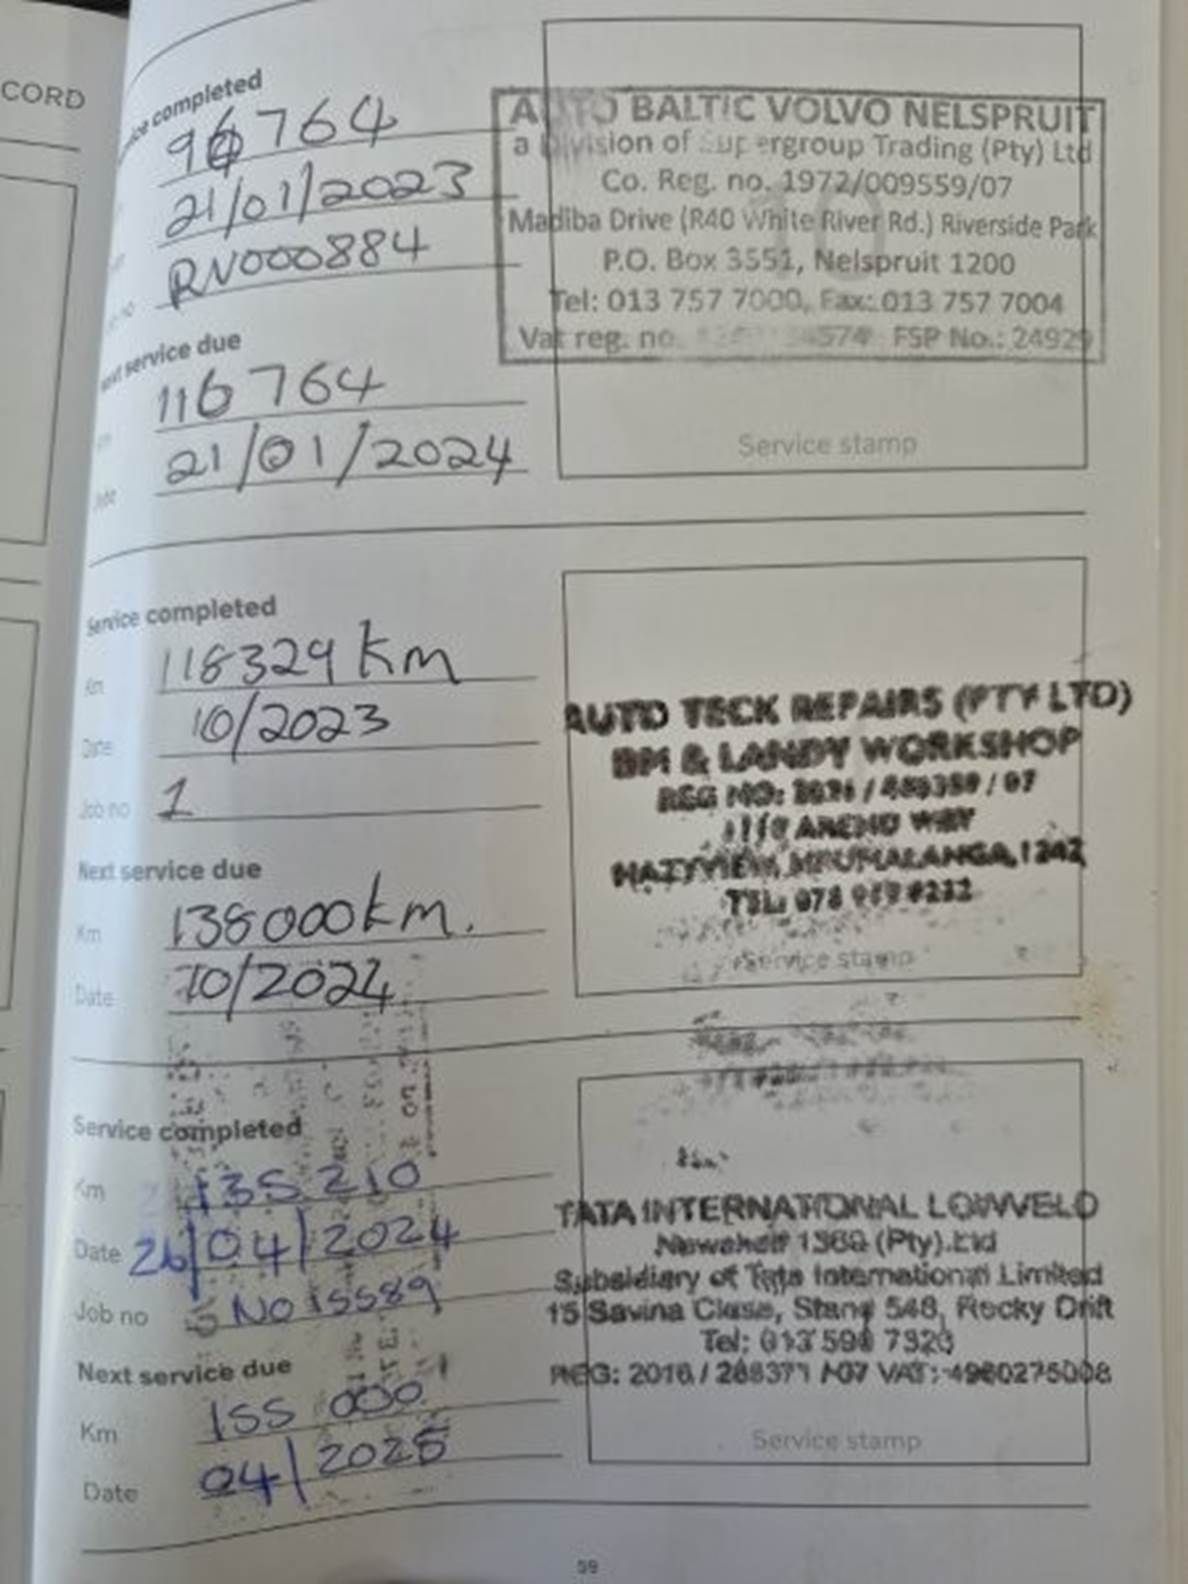 CORD
completed
96 764
21/01/2023
RN000884
service due
116 764
21/01/2024
AUTO BALTIC VOLVO NELSPRUIT
a Division of Supergroup Trading (Pty) Ltd
Co. Reg. no. 1972/009559/07
Madiba Drive (R40 White River Rd.) Riverside Park
P.O. Box 3551, Nelspruit 1200
Tel: 013 757 7000, Fax: 013 757 7004
Vat reg. no. 574 FSP No.: 24929
Service stamp
Service completed
Km 118329 km
Date 10/2023
Job no 1
Next service due
Km 138000km.
Date 10/2024
AUTO TECK REPAIRS (PTY LTD)
BM & LANDY WORKSHOP
REG NO: / 07
AREND WAY
HAZYVIEW, MPUMALANGA, 1242
TEL: 078
Service stamp
Service completed
Km 135 210
Date 26/04/2024
Job no No 15589
Next service due
Km 155 000
Date 04/2025
TATA INTERNATIONAL LOWVELD
Newshelf 1369 (Pty).Ltd
Subsidiary of Tata International Limited
15 Savina Close, Stand 548, Rocky Drift
Tel: 013 590 7320
REG: 2016 / 288371 / 07 VAT: 4960275008
Service stamp
59